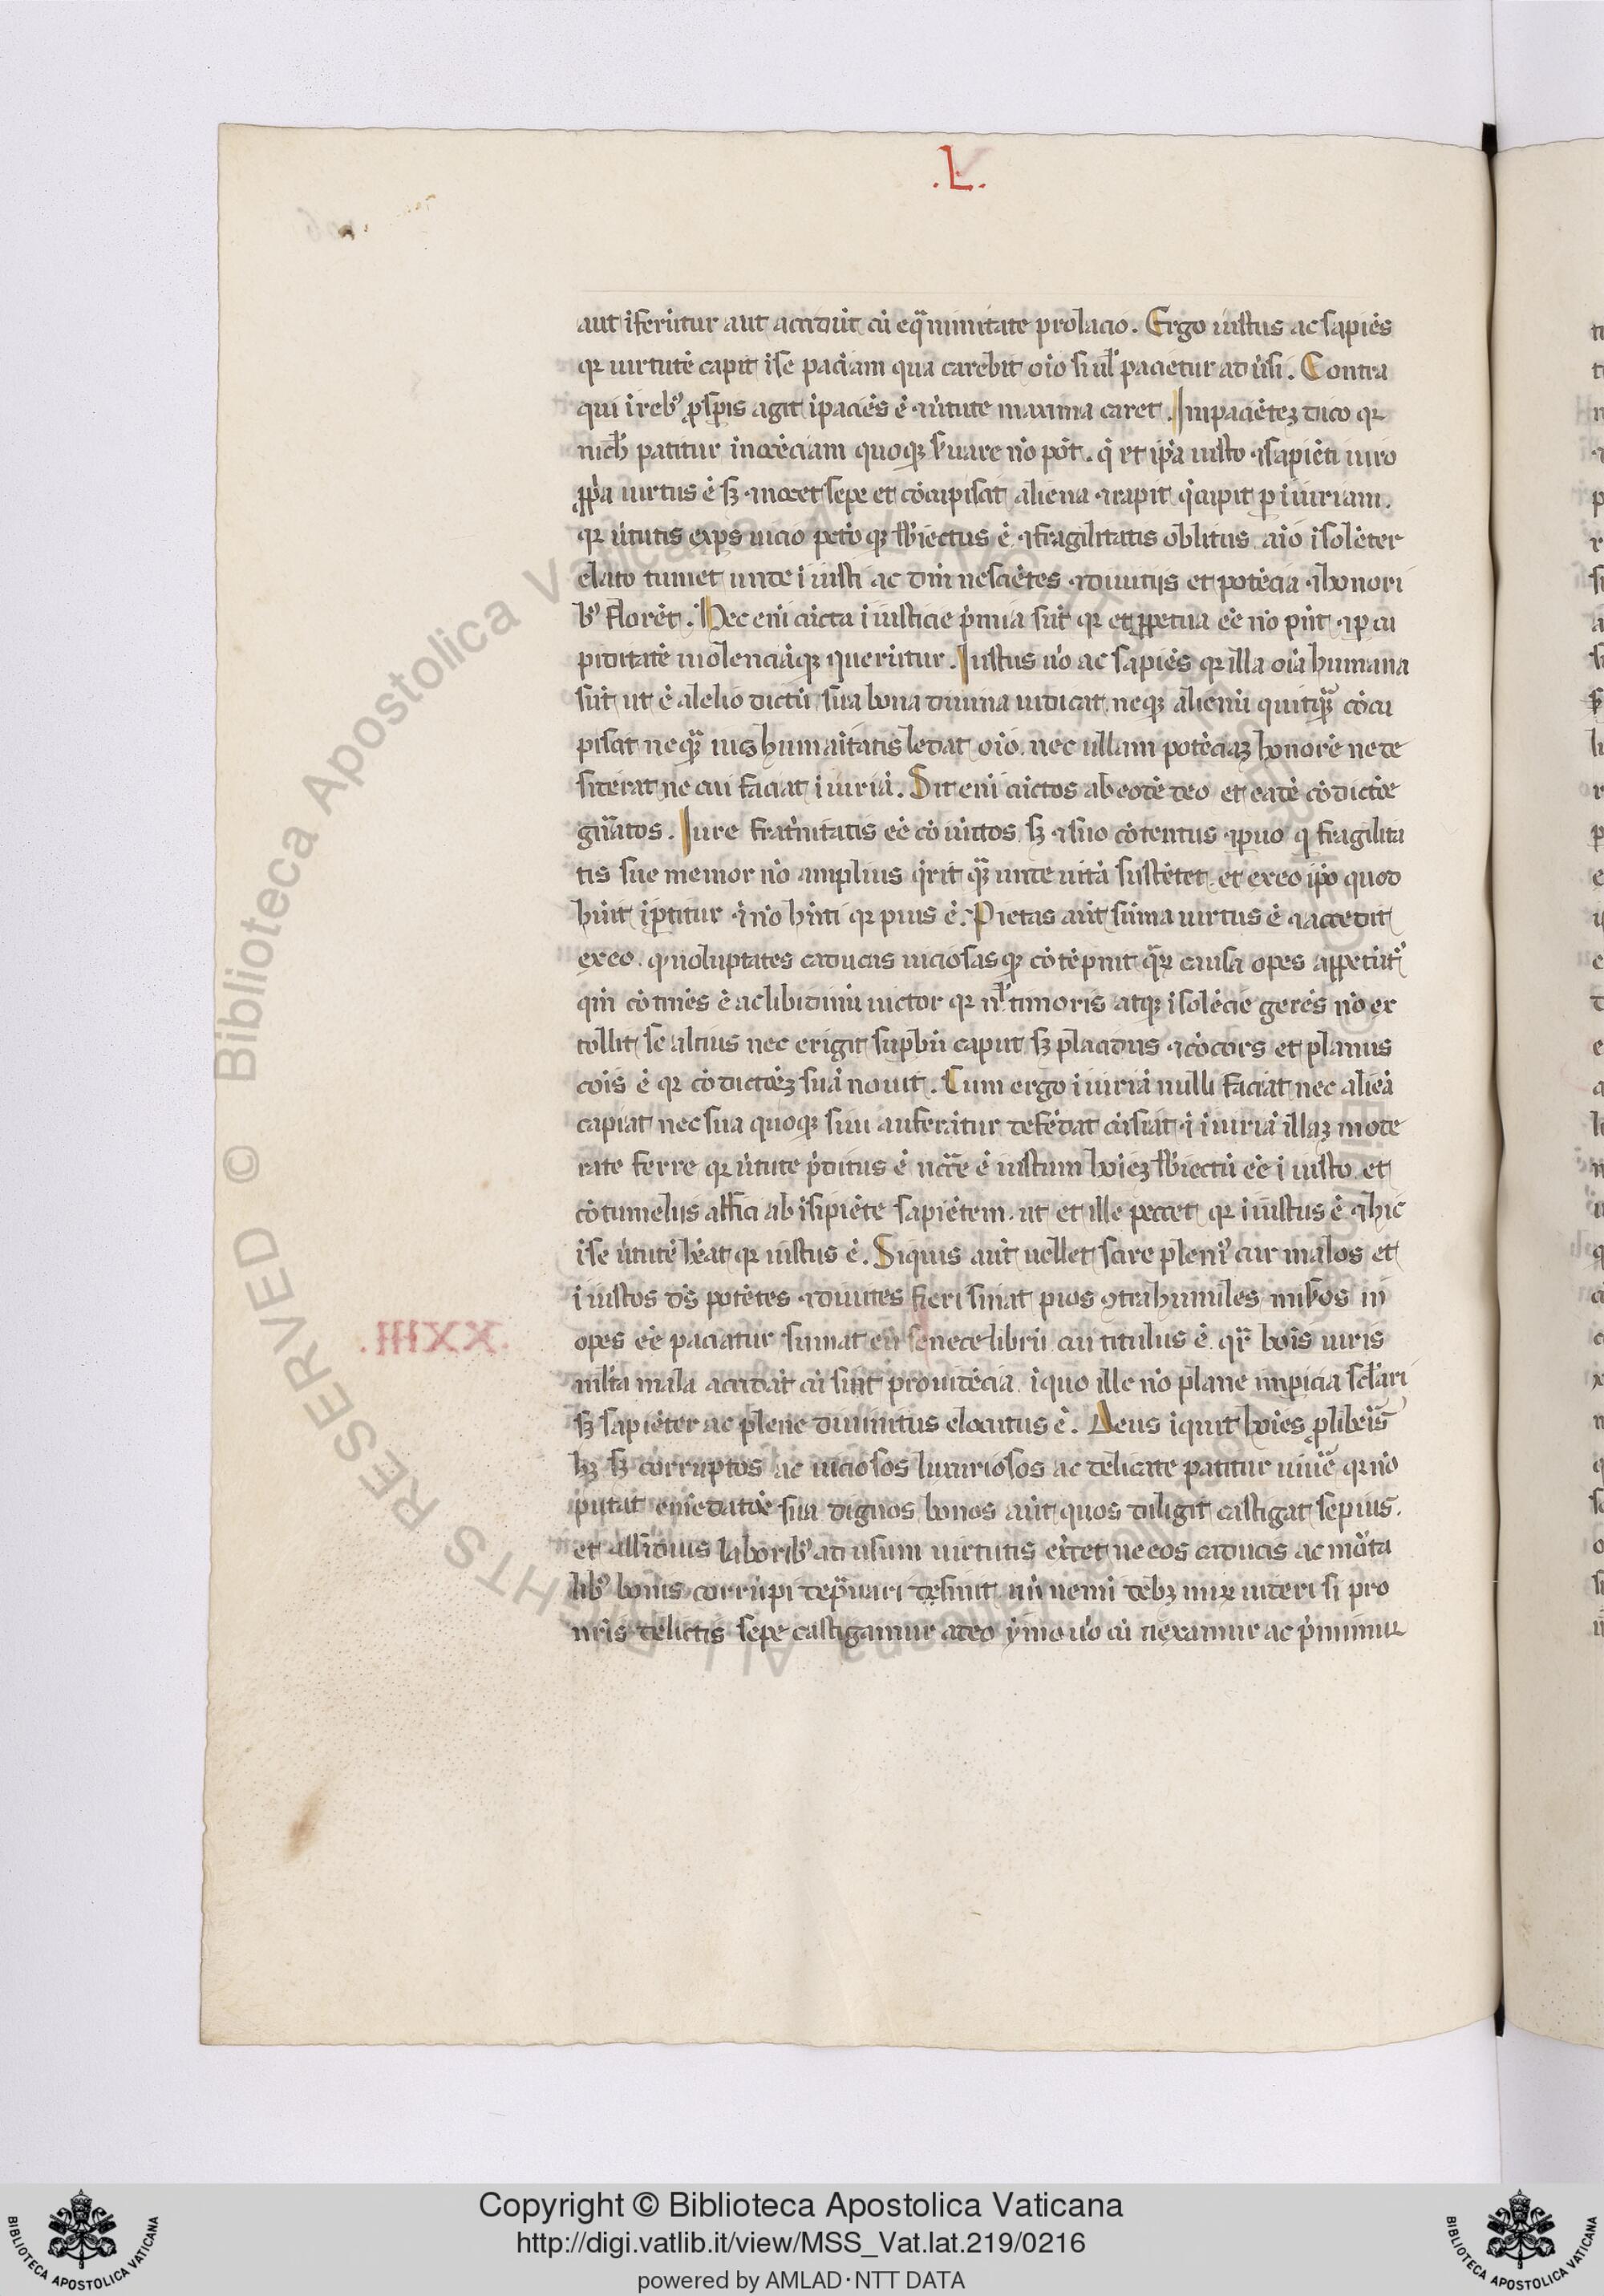 .L.
aut iferu̇tur aut accidu̇t cu̇ eq̃nimitate prolacio. Ergo iustus ac sapiės
qꝛ uirtutė capit i se paciam qua carebit oi̇o si nl̾ pacietur aduṡi. Contra
qui i reb᾽ ꝓspi̇s agit ipaciės ė ⁊u̇tute maxima caret. Inpaciėteꝫ dico qꝛ
nich̾ patitur inocėciam quoqꝫ ṡuare no̊ pȯt. q̇ et ip̊a iusto ⁊sapiėti uiro
ꝓp̊a uirtus ė sꝫ ⁊nocet sepe et cȯcupisc̾at aliena ⁊rapit q̇ cupit p iiuriam.
qꝛ u̇tutis exps uicio petȯqꝫ sb̾iectus ė ⁊fragilitatis oblitus ai̇o isolėter
elato tumet unde iiusti ac dm̄ nesciėtes ⁊diuitijs et potėcia ⁊honori
b᾽ florėt. Hec eni̇ cu̇cta iiusticie p̊mia su̇t qꝛ et ꝑpetua eė no̊ pn̄t ⁊p cu
piditatė uiolenciaṁqꝫ queru̇tur. Iustus ůo ac sapiės qꝛ illa oi̇a humana
su̇t ut ė alelio dictu̇ sua bona diuina iudicat neqꝫ alienu̇ quitq̃ cȯcu
pisc̾at neq̃ ius humaitatis ledat oi̇o. nec ullam potėciaꝫ honorė ne de
siderat ne cui faciat iiuria̅. Sit eni̇ cu̇ctos ab eodė deo et eadė cȯdictȯe
gn̄atos. Iure frat̾nitatis eė cȯiu̇ctos sꝫ ⁊suo cȯtentus ⁊puo q fragilita
tis sue memor no̊ amplius q̇rit q̃ unde uita̅ sustėtet. et ex eo ip̊o quod
hu̇it ip̾titur ⁊i no̊ hn̄ti qꝛ pius ė. Pietas au̇t su̇ma uirtus ė ⁊accedit
ex eo. q uoluptates caducas uiciosasqꝫ cȯtėpnit q̃ꝛ causa opes appetu̇t᾽
qm̄ cȯtinės ė ac libidinu̇ uictor qꝛ nl̾ timoris atqꝫ isolėcie gerės no̊ ex
tollit se altius nec erigit supbu̇ caput sꝫ placidus ⁊cȯcors et planus
coi̇s ė qꝛ cȯdictoė̇ꝫ sua̅ nouit. Cum ergo iiuria̅ nulli faciat nec aliea̅
capiat nec sua quoqꝫ siui auferat̅ur defėdat cu̇ sciat ⁊i iuria̅ illaꝫ mode
rate ferre qꝛ u̇tute p̊ditus ė nc̄cē ė iustum hoi̇eꝫ sb̾iectu̇ eė iiusto et
cȯtumelijs affici ab isipiėte sapiėtem. ut et ille peccet qꝛ iiustus ė ⁊hic
i se u̇tutė hėat qꝛ iustus ė. Siquis au̇t uellet scire pleni᾽ cur malos et
iiustos ds̄ potėtes ⁊diuites fieri sinat pios ꝯtra humiles miṡos in
opes eė paciatur sumat eu̇ senece libru̇ cui titulus ė qr̃ boi̇s uiris
ml̾ta mala accidat cu̇ sit prouidėcia. i quo ille no̊ plane impicia sc̾lari
sꝫ sapiėter ac plene diuinitus elocutus ė. Deus iquit hoi̇es ꝓ libei̇s
hꝫ sꝫ corruptos ac uiciosos luxuriosos ac delicate patitur uiue̾ qꝛ no̊
putat emėdatoė sua dignos bonos au̇t quos diligit castigat sepius.
et assiduis laborib᾽ ad usum uirtutis ex̊cet ne eos caducis ac mo̊ta
lib᾽ bonis corru̇pi dep̃uari desinit un̊ nemi̇ debꝫ miꝝ uideri si pro
nr̄is delictis sepe castigamur adeo ẏmo ůo cu̇ uexamur ac p̊mimuꝛ
Copyright © Biblioteca Apostolica Vaticana
http://digi.vatlib.it/view/MSS_Vat.lat.219/0216
powered by AMLAD·NTT DATA